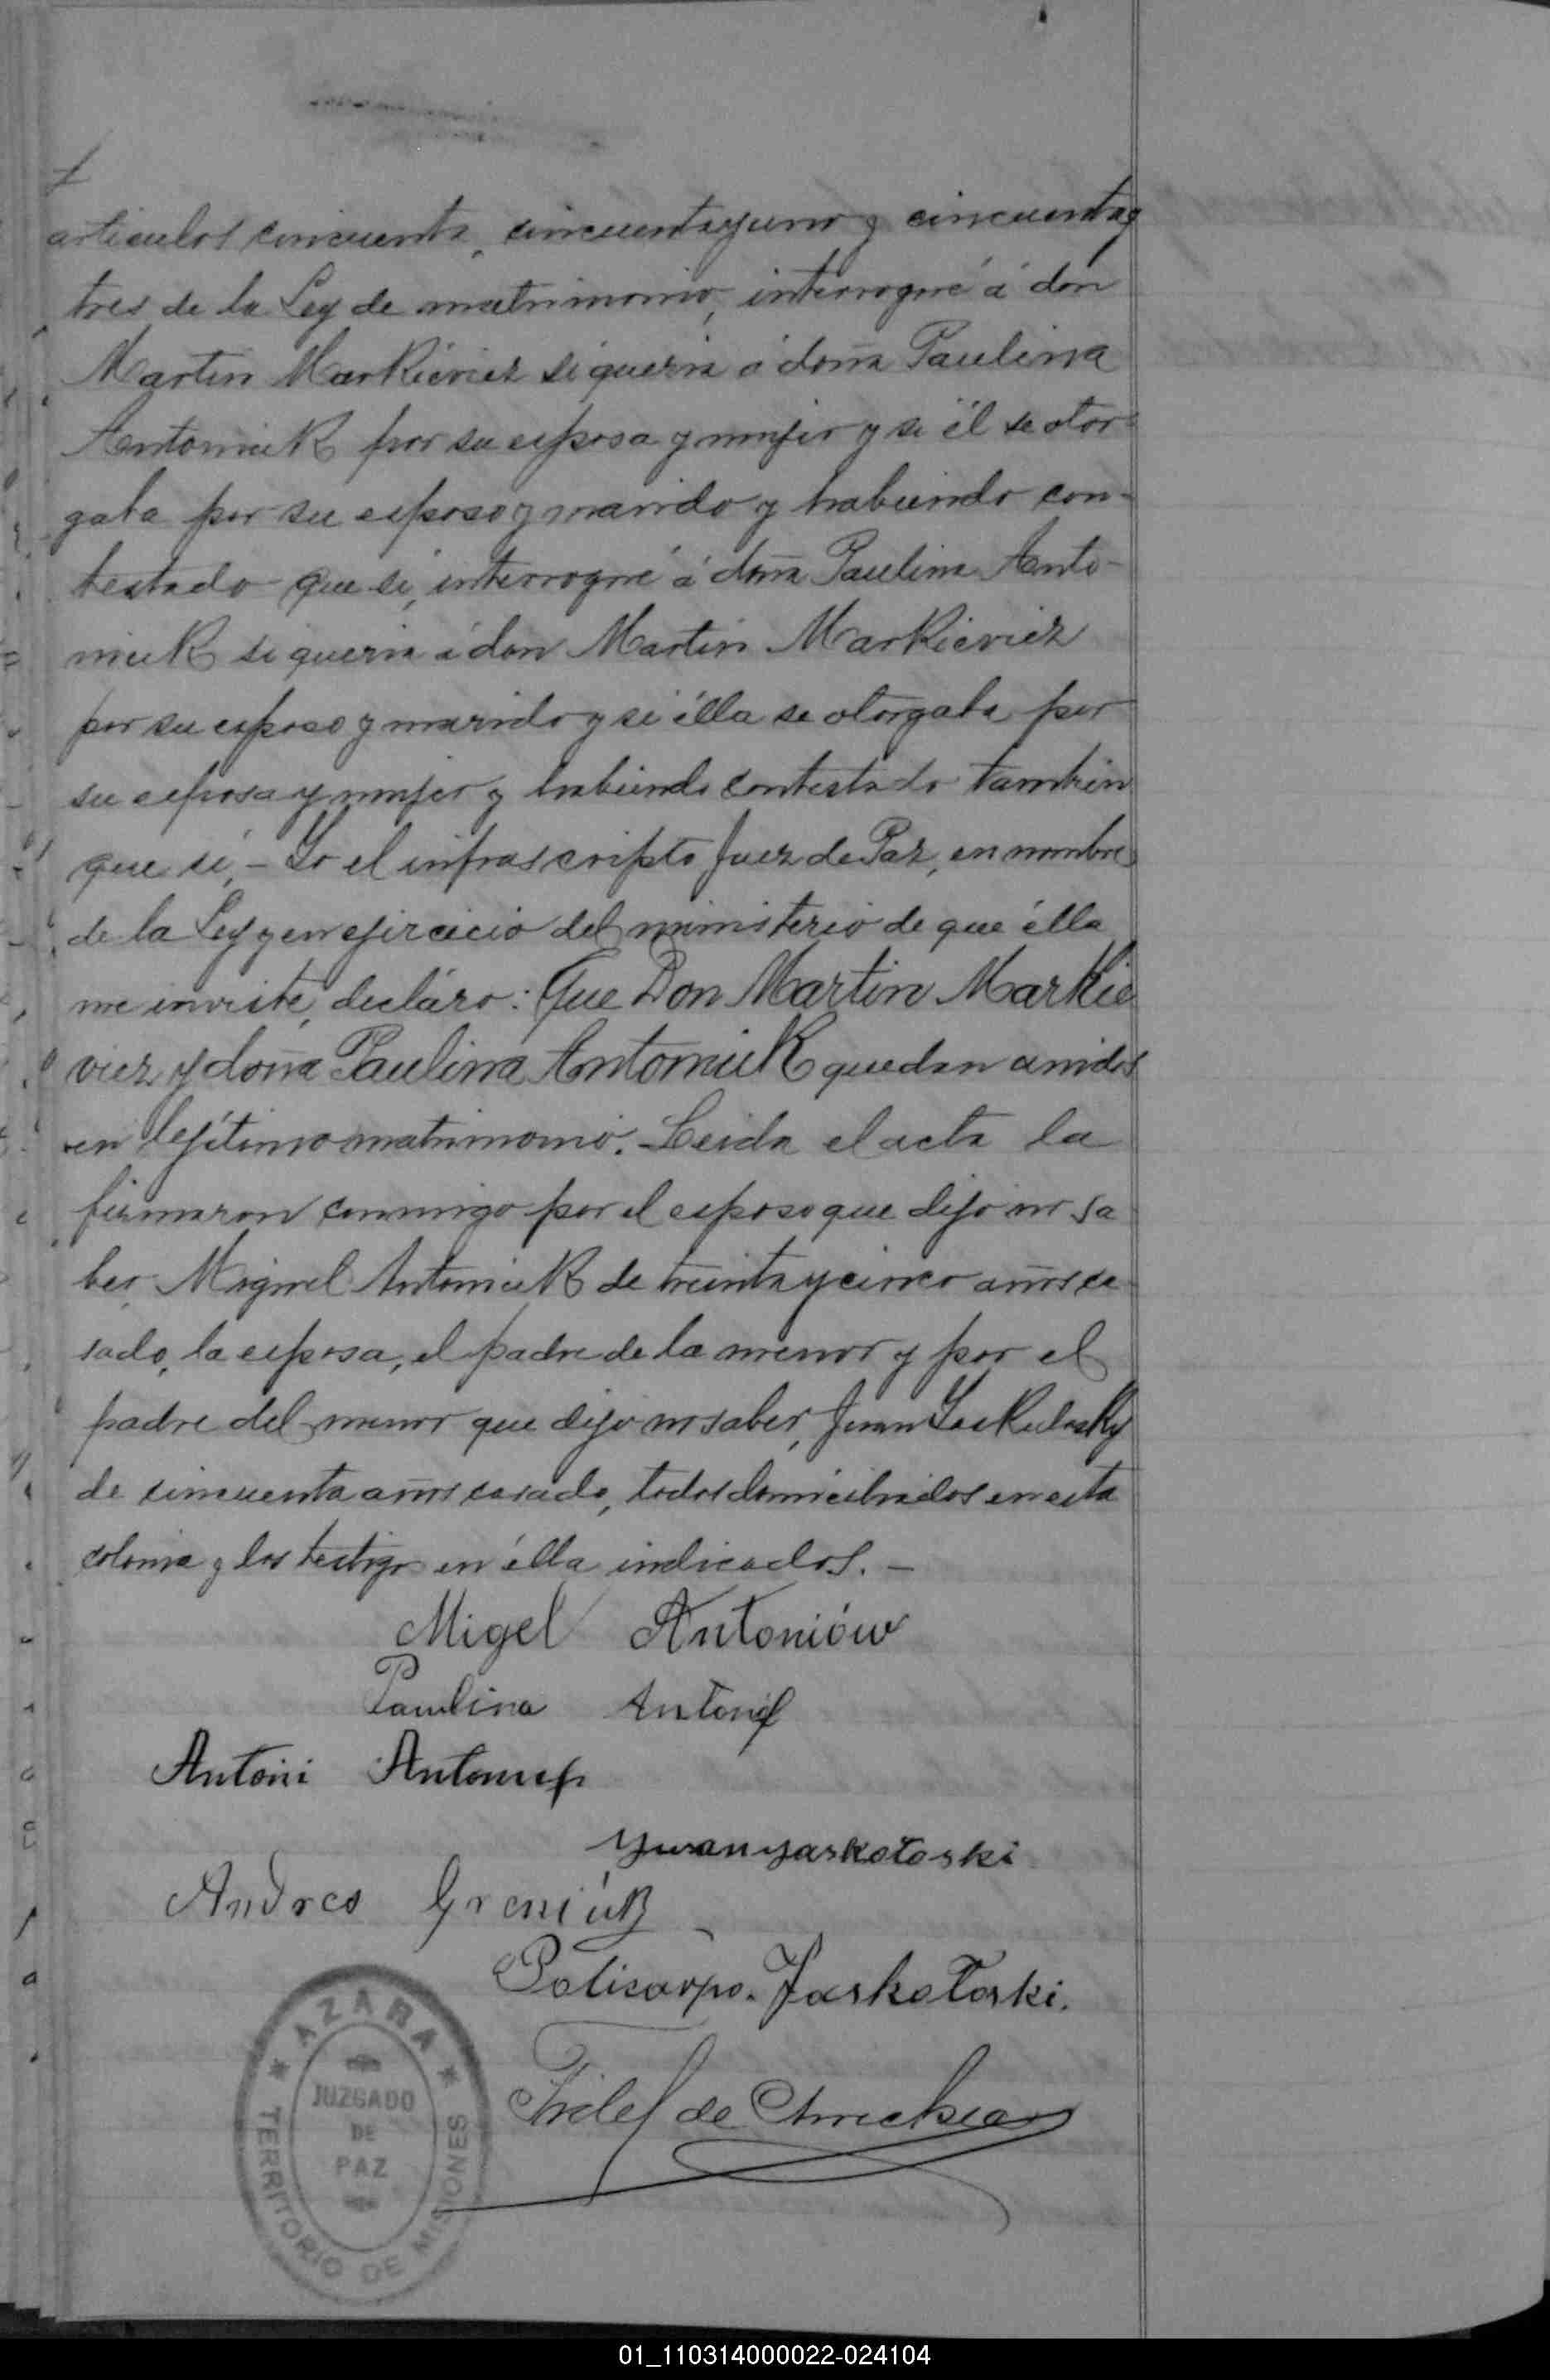 articulos cincuenta, cincuentayuno y cincuentay
tres de la Ley de matrimonio, interrogué á don
Martin Markieviez si queria á doña Paulina
Antoniuk por su esposa y mujer y si él se otor-
gaba por su esposo y marido y habiendo con-
testado que si, interrogué á doña Paulina Anto-
niuk si queria á don Martin Markieviez
por su esposo y marido y si élla se otorgaba por
su esposa y mujer y habiendo contestado tambien
que si, – Yo el infrascripto Juez de Paz, en nombre
de la Ley y en ejercicio del ministerio de que élla
me inviste, decláro: Que Don Martin Markie
viez y doña Paulina Antoniuk quedan unidos
en lejítimo matrimonio. Leida el acta la
firmaron conmigo por el esposo que dijo no sa
ber Miguel Antoniuk de treinta y cinco años ca
sado, la esposa, el padre de la menor y por el
padre del menor que dijo no saber, Juan
de cincuenta años casado, todos domiciliados en esta
colonia y los testigos en élla indicados. –
Migel Antoniów
Paulina
Antoni
Ywan yaskotoski
Andres
Policarpo. Jaskotoski.
Fidel de
AZARA
JUZGADO
DE
PAZ
TERRITORIO DE MISIONES
01_110314000022-024104